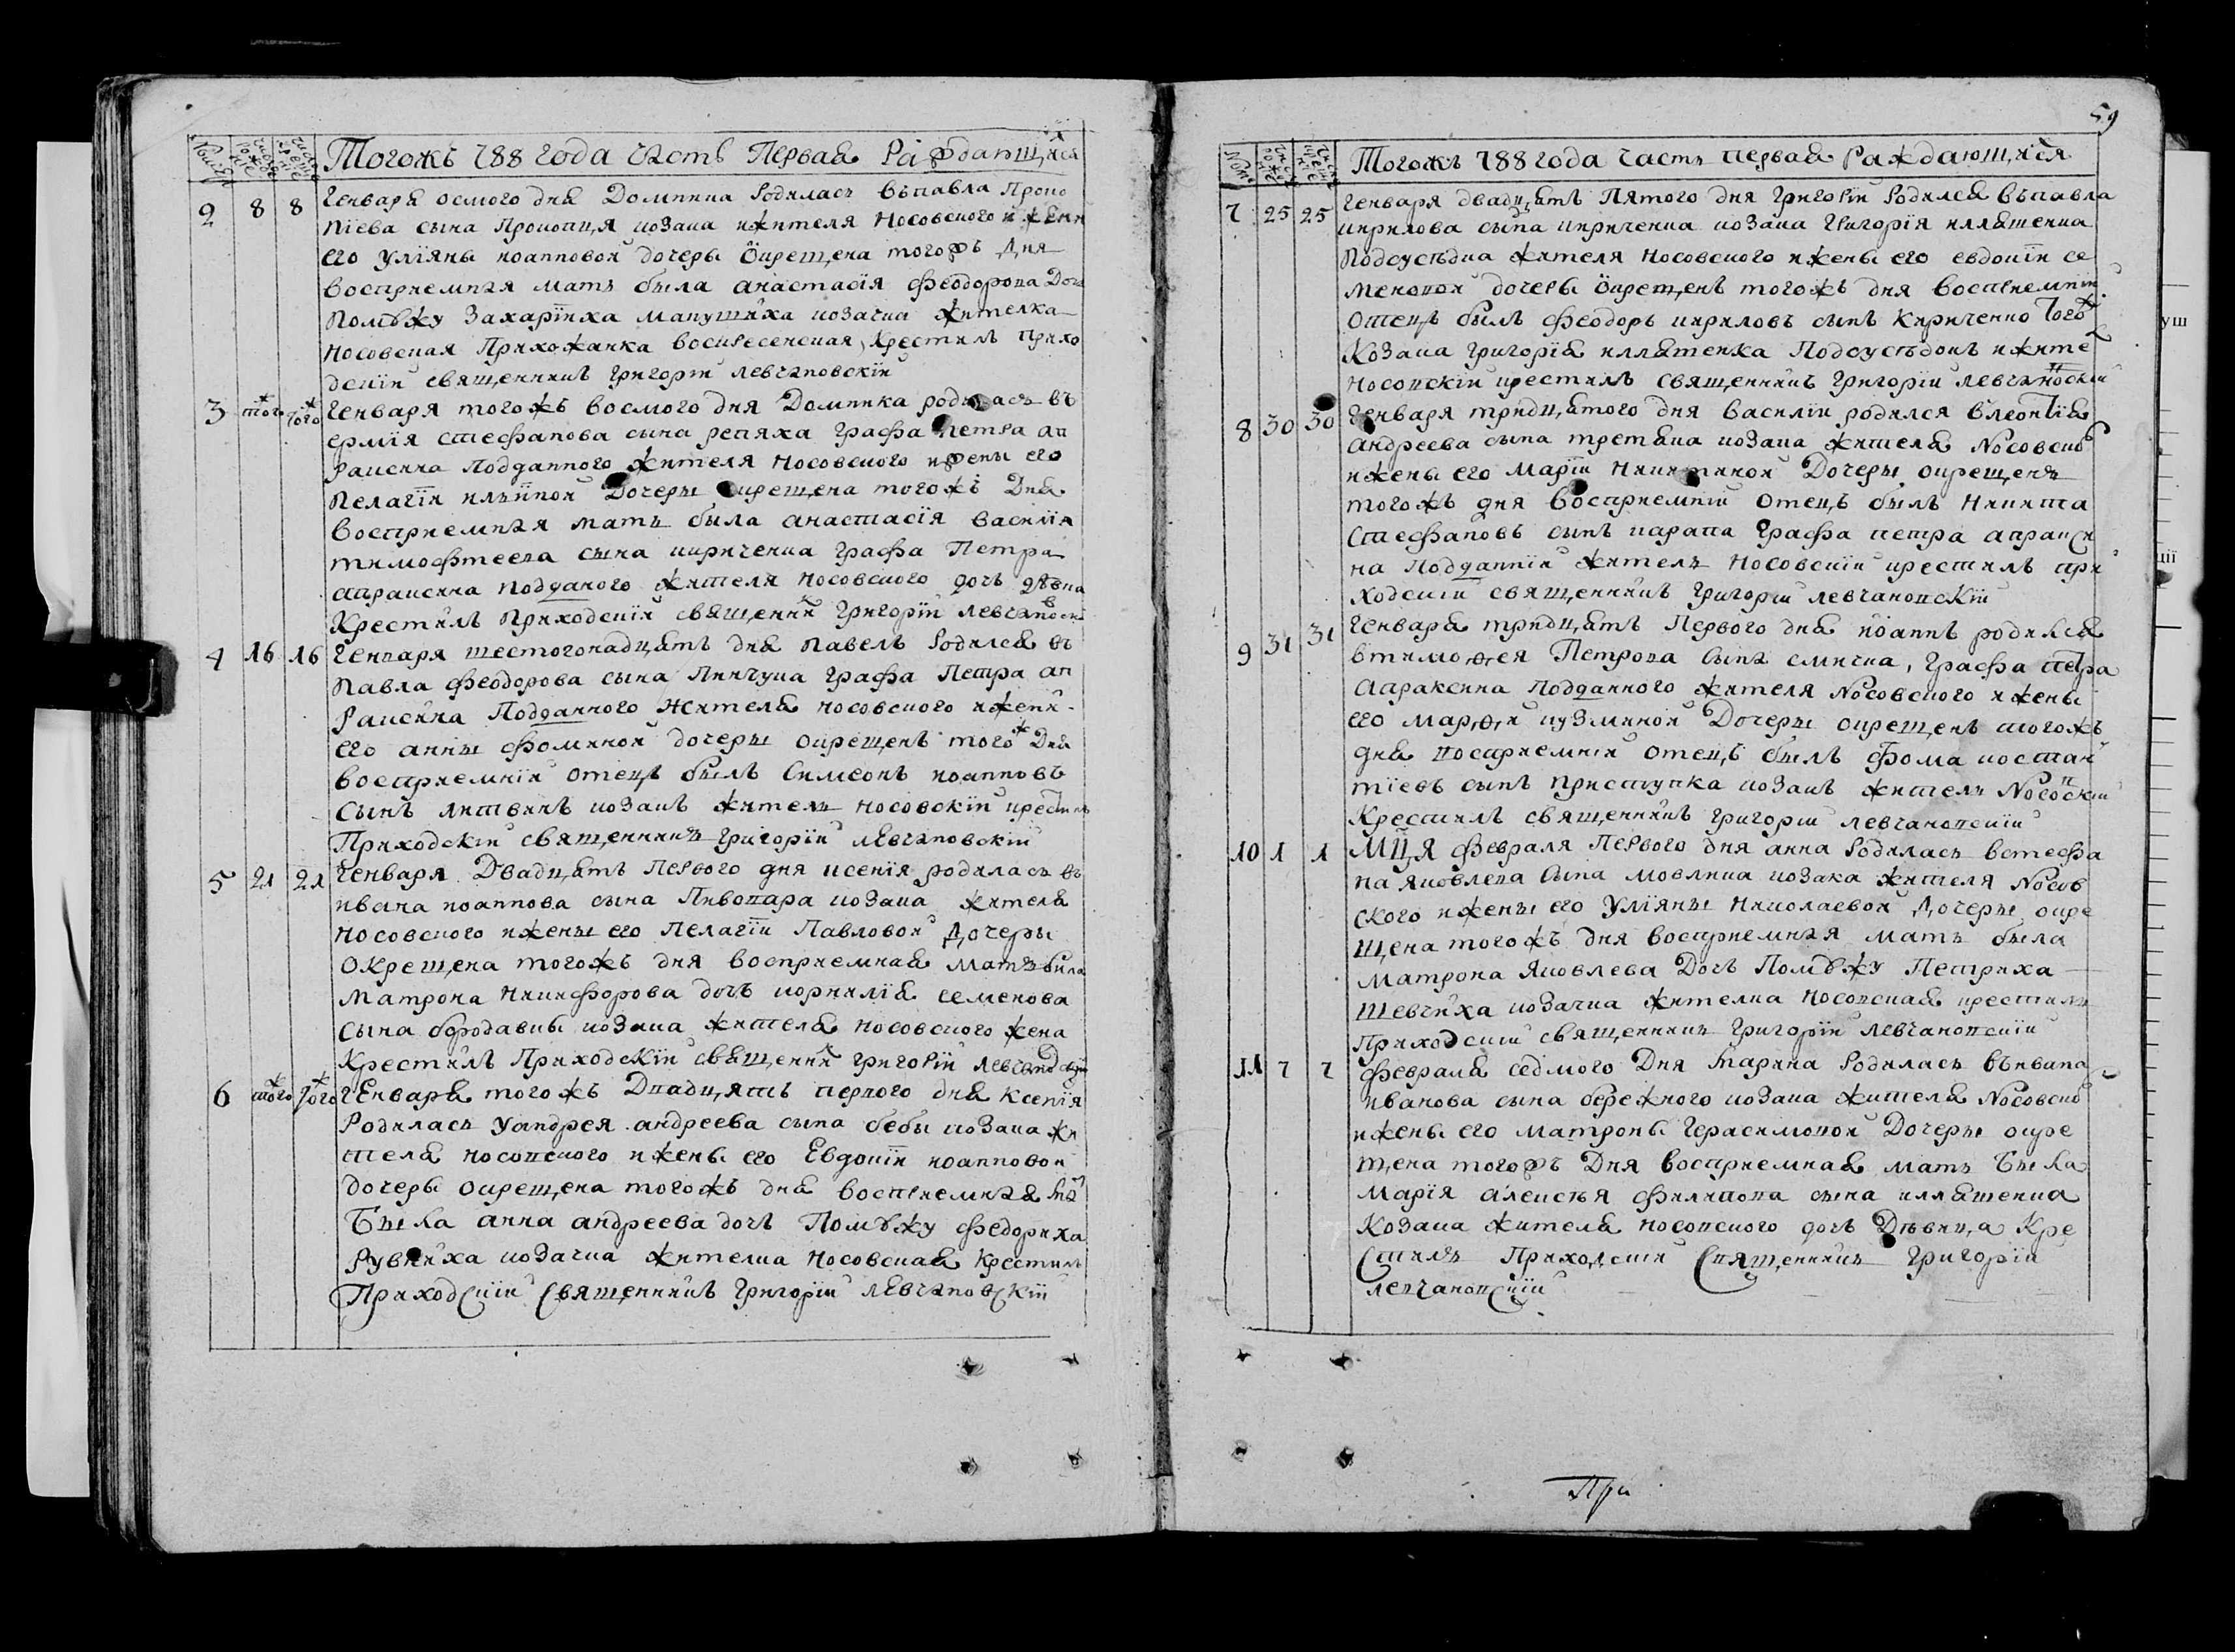 Тогожъ 788 года часть Первая Раждающихся
2 8 8 Генваря осмого дня Домникиа Родилась въ павла Проко
пїева сына Прокопця козака жителя Носовского и жени
его Улїяны иоанновой дочеры Окрещена тогожъ Дня
воспрнемная мать была анастасїя Феодорова Дочь
Помѣжу Захарїиха манушиха козачка жителка
Носовская Прихожанка воскресенская, Крестилъ Прихо
дскїй священникъ Григорїй левчановскїй
3 тогож Тогож Генваря тогожъ восмого дня Домникиа родилась въ
ермїя стефанова сына репяха Графа Петра ап
раксина Подданного жителя Носовского ижены его
Пелагїи ильїной Дочеры окрещена тогожъ Дня
воспрнемная мать была анастасїя василїя
тимофтеева сына кириченка Графа Петра
апраксина подданого жителя Носовского дочъ дѣвка
Крестилъ Приходскїй священник Григорїй левчановскїй
4 16 16 Генваря шестогонадцать дня Павелъ Родился въ
Павла Феодорова сына Пинчука Графа Петра ап
Раксина Подданного Жителя носовского ижени
его анны фоминой дочеры окрещенъ того ж Дня
воспрнемнїй отецъ былъ Симеонъ иоанновъ
Сынъ литвинъ козакъ житель носовскїй крестилъ
Приходскїй священникъ Григорїй левчановскїй
5 21 21 Генваря Двадцать Первого дня ксенїя родилась въ
ивана иоаннова сына Пивовара козака жителя
Носовского ижены его Пелагїи Павловой Дочеры
Окрещена тогожъ дня воспрнемная мать была
Матрона Никифорова дочъ корнилїя семенова
Сына бородавки козака жителя носовского жена
Крестилъ Приходскїй священник Григорїй левчановскїй
6 тогож Тогож Генваря тогожъ Двадцять первого дня Ксенїя
Родилась Уандрея андреева сына бебы козака жи
теля носовского ижены его Евдокїи иоанновой
дочеры окрещена тогожъ дня воспрнемная мат
Была анна андреева дочъ Помѣжу Федориха
Рувниха козачка жителка Носовская Крестилъ
Приходскїй Священникъ Григорїй левчановскїй
59
Тогожъ 788 года часть первая Раждающихся
7 25 25 Генваря двадцать Пятого дня Григорїй Родился въпавла
кирилова сына киричинка козака Григорїя илляшенка
Подсусѣдка жителя Носовского ижены его евдокїи се
меновой дочеры Окрещенъ тогожъ дня воспрнемнїй
отецъ былъ Феодоръ кириловъ сынъ Кириченко Того ж
Козака Григорїя илляшенка Подсусѣдокъ ижител
Носовскїй крестилъ священникъ Григорїй левчановскїй
8 30 30 Генваря тридцатого дня василїй родился влеонтїя
андреева сына третяка козака жителя Носовског
ижены его Марїи Никитиной Дочеры окрещенъ
тогожъ дня воспрнемнїй отецъ былъ Никита
Стефановъ сынъ карапа Графа петра апракси
на Подданнїй житель Носовскїй крестилъ при
ходскїй священникъ Григорїй левчановскїй
9 31 31 Генваря тридцать Первого дня иоаннъ родился
втимоѳея Петрова сына смичка, Графа Петра
Апраксина Подданного жителя Носовского ижены
его Марѳи кузминой Дочеры окрещенъ тогожъ
дня воспрнемнїй отецъ былъ Фома костан
тїевъ сынъ приступка козакъ житель Носовскїй
Крестилъ священникъ Григорїй левчановскїй
10 1 1 Мц̃а Февраля Первого дня анна Родилась встефа
на яковлева Сына мовлика козака жителя Носов
ского ижены его Улїяны Николаевой Дочеры окре
щена тогожъ дня воспрнемная мать была
Матрона Яковлева Дочъ Помѣжу Петриха
Шевчиха козачка жителка Носовская крестилъ
Приходскїй священникъ Григорїй левчановскїй
11 7 7 Февраля седмого Дня Марина Родилась въивана
иванова сына бережного козака жителя Носовског
ижены его матроны Герасимовой Дочеры окре
щена тогожъ Дня воспрнемная мать Была
Марїя алексѣя филипова сына илляшенка
Козака жителя носовского дочъ Дѣвица Кре
стилъ Приходскїй Священникъ Григорїй
левчановскїй
При